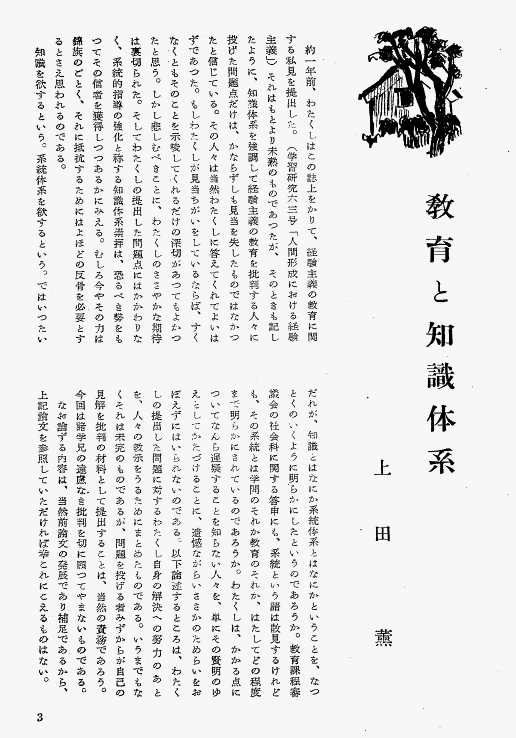 教育と知識体系
上田薫
約一年前、わたくしはこの誌上をかりて、経験主義の教育に関
する私見を提出した。(学習研究六三号「人間形成における経験
主義」)それはもとより未熟のものであつたが、そのときも記し
たように、知識体系を強調して経験主義の教育を批判する人々に
投げた問題点だけは、かならずしも見当を失したものではなかつ
たと信じている。その人々は当然わたくしに答えてくれてよいは
ずであつた。もしわたくしが見当ちがいをしているならば、すく
なくともそのことを示唆してくれるだけの深切があつてもよかつ
たと思う。しかし悲しむべきことに、わたくしのささやかな期待
は裏切られた。そしてわたくしの提出した問題点にはかかわりな
く、系統的指導の強化と称する知識体系崇拝は、恐るべき勢をも
つてその信者を獲得しつつあるかにみえる。むしろ今やその力は
錦旗のごとく、それに抵抗するためにはよほどの反骨を必要とす
るとさえ思われるのである。
知識を欲するという。系統体系を欲するという。ではいつたい
だれが、知識とはなにか系統体系とはなにかということを、なつ
とくのいくように明らかにしたというのであろうか。教育課程審
議会の社会科に関する答申にも、系統という語は散見するけれど
も、その系統とは学問のそれか教育のそれか、はたしてどの程度
まで明らかにされているのであろうか。わたくしは、かかる点に
ついてなんら遅疑することを知らない人々を、単にその賢明のゆ
えとしてかたづけることに、遺憾ながらいささかのためらいをお
ぼえずにはいられないのである。以下論述するところは、わたく
しの提出した問題に対するわたくし自身の解決への努力のあと
を、人々の教示をうるためにまとめたものである。いうまでもな
くそれは未完のものであるが、問題を投げる者みずからが自己の
見解を批判の材料として提出することは、当然の責務であろう。
今回は諸学兄の遠慮なき批判を切に願つてやまないものである。
なお論ずる内容は、当然前論文の発展であり補足であるから、
上記論文を参照していただければ幸これにこえるものはない。
3